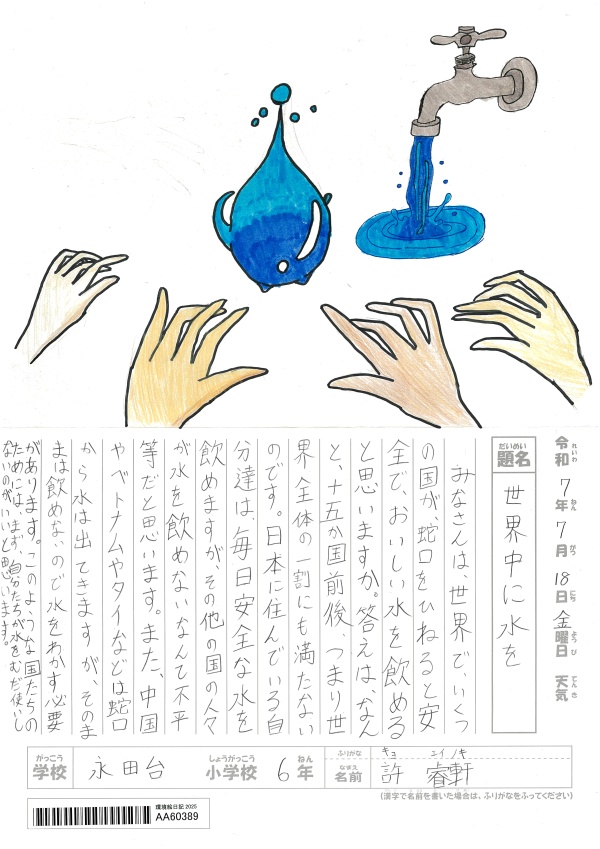 令和 7年 7月 18日 金曜日 天気
れいわ ねん がつ にち ようび てんき
だいめい
題名 世界中に水を
みなさんは、世界で、いくつ
の国が、蛇口をひねると安
全で、おいしい水を飲める
と思いますか。答えは、なん
と、十五か国前後、つまり世
界全体の一割にも満たない
のです。日本に住んでいる自
分達は、毎日安全な水を
飲めますが、その他の国の人々
が水を飲めないなんて不平
等だと思います。また、中国
やベトナムやタイなどは蛇口
から水は出てきますが、そのま
まは飲めないので水をわかす必要
があります。このような国たちの
ためには、まず、自分たちが水をむだ使いし
ないのがいいと思います。
がっこう しょうがっこう ねん ふりがな キョ ニイノキ
学校 永田台 小学校 6年 なまえ 名前 許 睿軒
(漢字で名前を書いた場合は、ふりがなをふってください)
環境絵日記 2025
AA60389